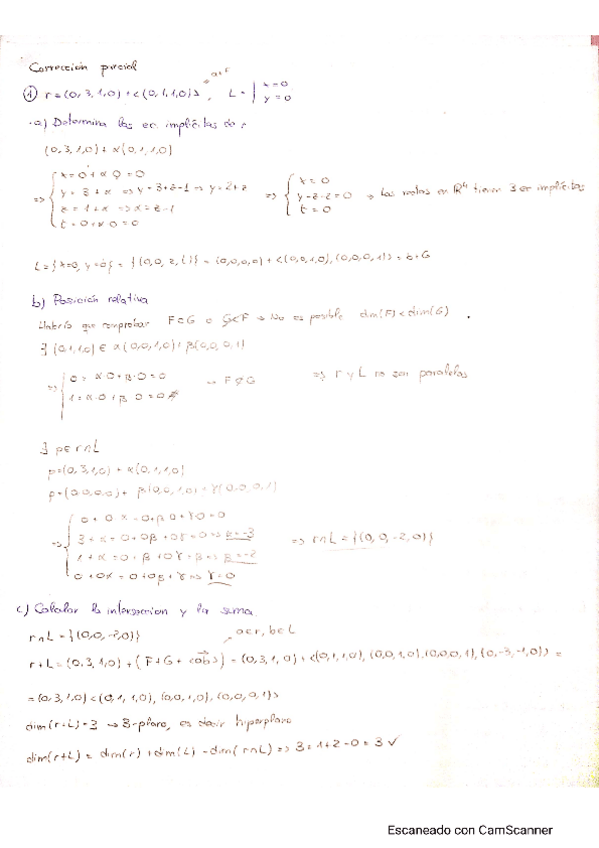 Corrección parcial
a∈r
① r=(0,3,1,0)+<(0,1,1,0)>, L={ x=0
y=0
a) Determina las ec implícitas de:
(0,3,1,0)+α(0,1,1,0)
⇒ { x=0+α·0=0
y=3+α ⇒ y=3+z-1 ⇒ y=2+z
z=1+α ⇒ α=z-1
t=0+α·0=0
⇒ { x=0
y-z-2=0
t=0
⇒ Las rectas en R⁴ tienen 3 ec implícitas
L={x=0, y=0}={(0,0,z,t)}=(0,0,0,0)+<(0,0,1,0),(0,0,0,1)>=b+G
b) Posición relativa
Habría que comprobar F⊂G o G⊂F → No es posible dim(F)<dim(G).
(0,1,1,0) ∈ α(0,0,1,0)+β(0,0,0,1)
⇒ { 0=α·0+β·0=0
1=α·0+β·0=0
→ F⊄G
⇒ r y L no son paralelas
∃ p∈r∩L
p=(0,3,1,0)+α(0,1,1,0)
p=(0,0,0,0)+β(0,0,1,0)+γ(0,0,0,1)
⇒ { 0+0α=0+β0+γ0=0
3+α=0+0β+0γ=0⇒α=-3
1+α=0+β+0γ=β⇒β=-2
0+0α=0+0β+γ⇒γ=0
⇒ r∩L={(0,0,-2,0)}
c) Calcular la intersección y la suma.
r∩L={(0,0,-2,0)}
a∈r, b∈L
r+L=(0,3,1,0)+(F+G+<ab>)=(0,3,1,0)+<(0,1,1,0),(0,0,1,0),(0,0,0,1),(0,-3,-1,0)>=
=(0,3,1,0)<(0,1,1,0),(0,0,1,0),(0,0,0,1)>
dim(r+L)=3 → 3-plano, es decir hiperplano
dim(r+L)=dim(r)+dim(L)-dim(r∩L)⇒3=1+2-0=3✓
Escaneado con CamScanner